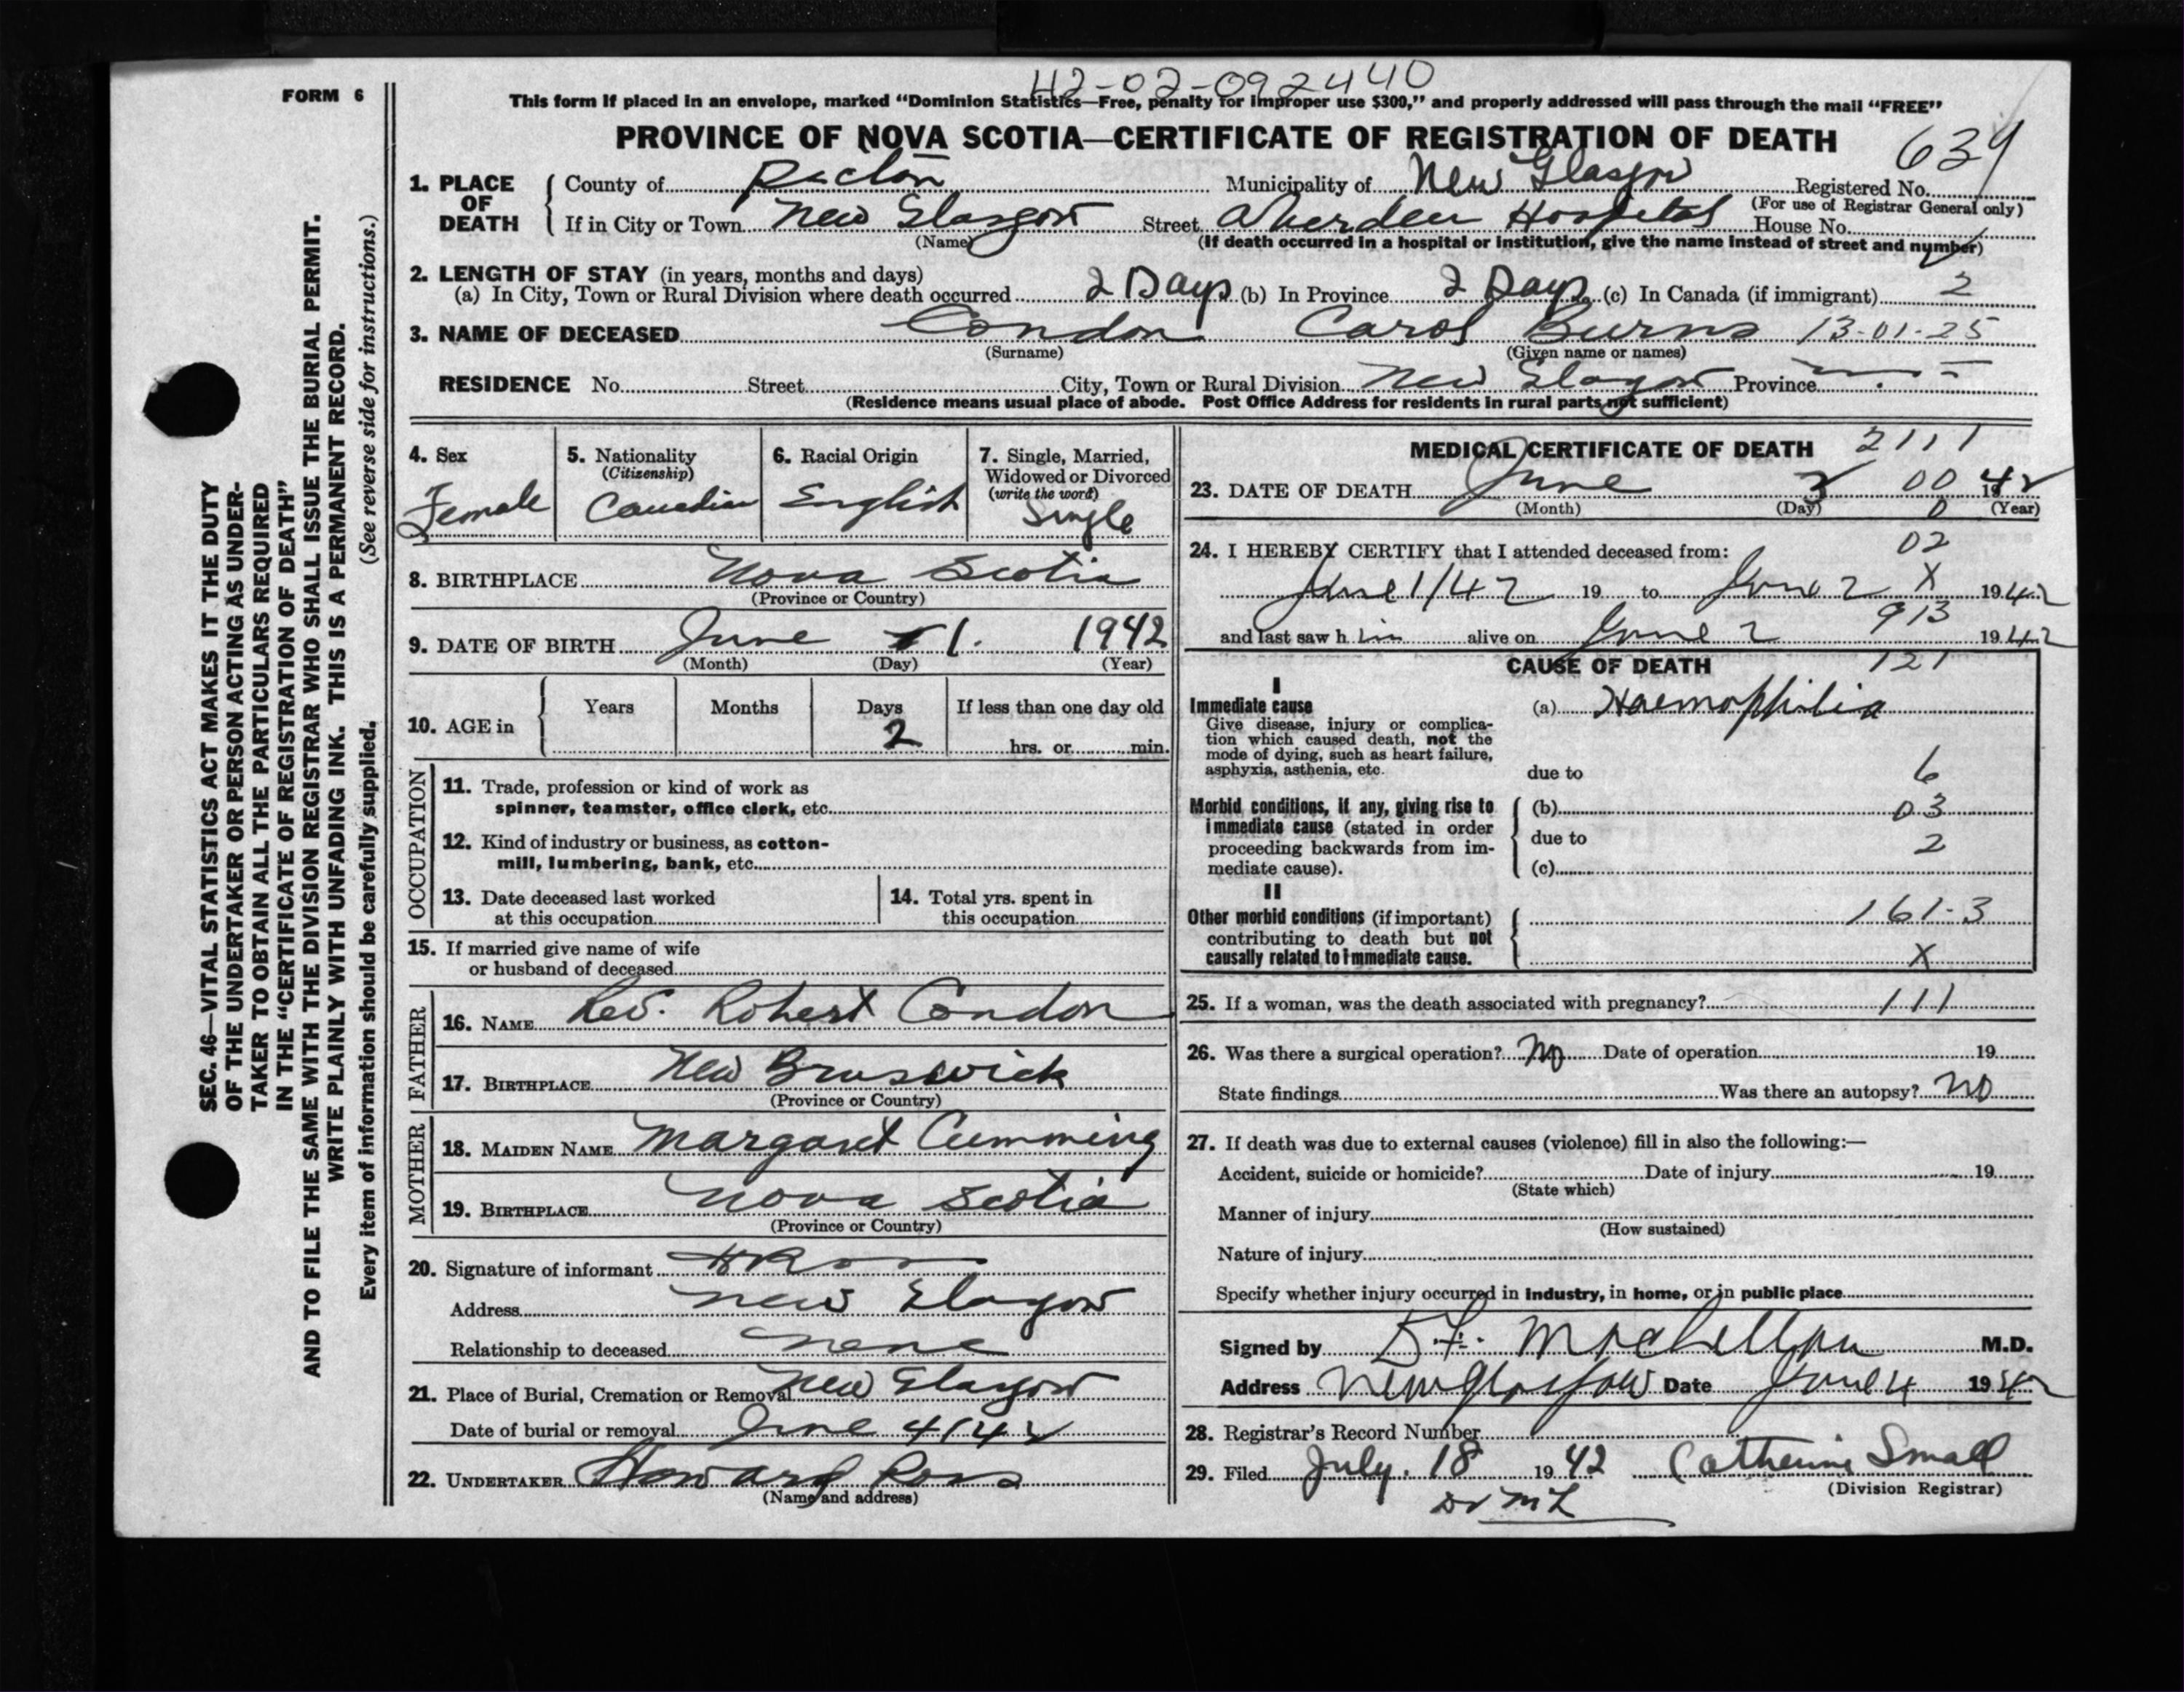 42-02-092440
FORM 6
This form if placed in an envelope, marked “Dominion Statistics—Free, penalty for improper use $300,” and properly addressed will pass through the mail “FREE”
PROVINCE OF NOVA SCOTIA—CERTIFICATE OF REGISTRATION OF DEATH
639
1. PLACE OF DEATH
County of Pictou Municipality of New Glasgow Registered No.
(For use of Registrar General only)
If in City or Town New Glasgow Street Aberdeen Hospital House No.
(Name) (If death occurred in a hospital or institution, give the name instead of street and number)
2. LENGTH OF STAY (in years, months and days)
(a) In City, Town or Rural Division where death occurred 2 Days (b) In Province 2 Days (c) In Canada (if immigrant) 2
3. NAME OF DECEASED Condon Carol Burns 13-01-25
(Surname) (Given name or names)
RESIDENCE No. Street City, Town or Rural Division New Glasgow Province
(Residence means usual place of abode. Post Office Address for residents in rural parts not sufficient)
4. Sex
Female
5. Nationality
(Citizenship)
Canadian
6. Racial Origin
English
7. Single, Married,
Widowed or Divorced
(write the word)
Single
8. BIRTHPLACE Nova Scotia
(Province or Country)
9. DATE OF BIRTH June 1. 1942
(Month) (Day) (Year)
10. AGE in
Years Months Days If less than one day old
2 hrs. or min.
OCCUPATION
11. Trade, profession or kind of work as
spinner, teamster, office clerk, etc.
12. Kind of industry or business, as cotton-
mill, lumbering, bank, etc.
13. Date deceased last worked
at this occupation
14. Total yrs. spent in
this occupation
15. If married give name of wife
or husband of deceased
FATHER
16. NAME Rev. Robert Condon
17. BIRTHPLACE New Brunswick
(Province or Country)
MOTHER
18. MAIDEN NAME Margaret Cumming
19. BIRTHPLACE Nova Scotia
(Province or Country)
20. Signature of informant H Ross
Address New Glasgow
Relationship to deceased none
21. Place of Burial, Cremation or Removal New Glasgow
Date of burial or removal June 4/42
22. UNDERTAKER Howard Ross
(Name and address)
MEDICAL CERTIFICATE OF DEATH 2111
23. DATE OF DEATH June 2 00 1942
(Month) (Day) 0 (Year)
24. I HEREBY CERTIFY that I attended deceased from: 02
June 1/42 19 to June 2 X 1942
913
and last saw h im alive on June 2 1942
CAUSE OF DEATH 121
I
Immediate cause
Give disease, injury or complica-
tion which caused death, not the
mode of dying, such as heart failure,
asphyxia, asthenia, etc.
(a) Haemophilia
due to 6
Morbid conditions, if any, giving rise to
immediate cause (stated in order
proceeding backwards from im-
mediate cause).
(b) 03
due to 2
(c)
II
Other morbid conditions (if important)
contributing to death but not
causally related to immediate cause.
161-3
X
25. If a woman, was the death associated with pregnancy? 111
26. Was there a surgical operation? No Date of operation 19
State findings Was there an autopsy? no
27. If death was due to external causes (violence) fill in also the following:—
Accident, suicide or homicide? Date of injury 19
(State which)
Manner of injury
(How sustained)
Nature of injury
Specify whether injury occurred in industry, in home, or in public place
Signed by M.D.
Address New Glasgow Date June 4 1942
28. Registrar's Record Number
29. Filed July. 18 1942 Catherine Small
(Division Registrar)
Dr McL
SEC. 46—VITAL STATISTICS ACT MAKES IT THE DUTY
OF THE UNDERTAKER OR PERSON ACTING AS UNDER-
TAKER TO OBTAIN ALL THE PARTICULARS REQUIRED
IN THE “CERTIFICATE OF REGISTRATION OF DEATH”
AND TO FILE THE SAME WITH THE DIVISION REGISTRAR WHO SHALL ISSUE THE BURIAL PERMIT.
WRITE PLAINLY WITH UNFADING INK. THIS IS A PERMANENT RECORD.
Every item of information should be carefully supplied. (See reverse side for instructions.)